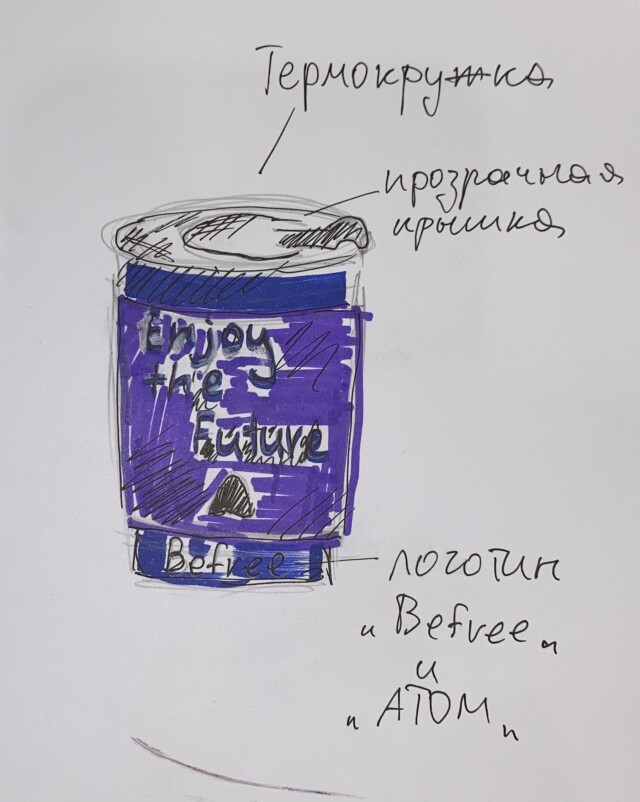 Термокружка
прозрачная
крышка
Enjoy
the
Future
Befree
логотип
"Befree"
и
"АТОМ"